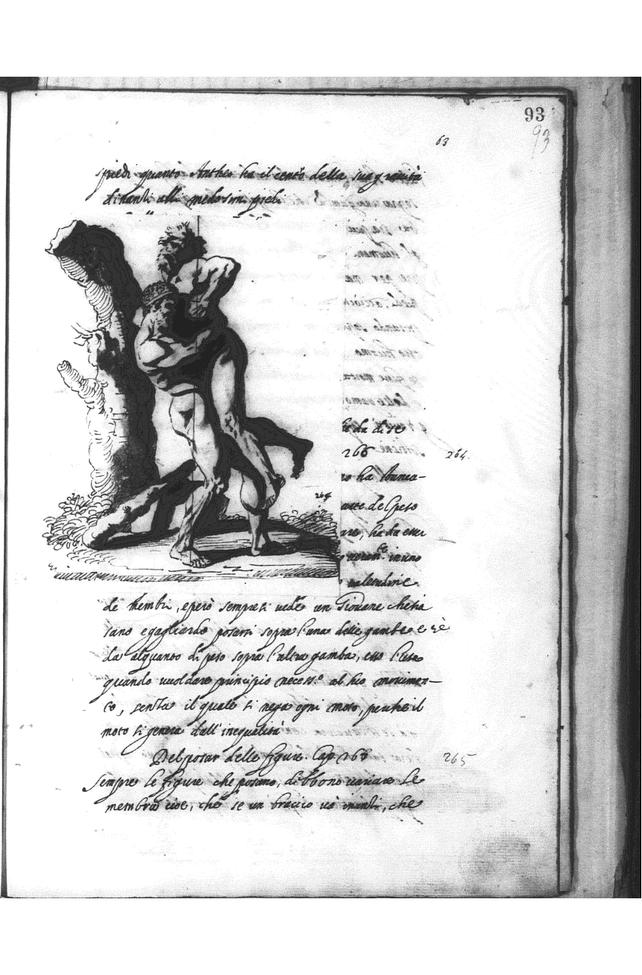 93
93
63
piedi quanto Antheo ha il cento della sua gravità
dinanti alli medesimi piedi
da di se
266
264
ro ha
del peso
are, ha da esser
in uno
264
de membri, e però sempre si vede un Giovane che sia
sano e gagliardo posarsi sopra l'una delle gambe e se
da alquanto di peso sopra l'altra gamba, esso l'usa
quando vuol dare principio necess.o al suo movimen-
to, senza il quale si nega ogni moto, perche il
moto si genera dall'inequalità
Del posar delle figure. Cap. 266
265
Sempre le figure che posano, debbono variare le
membra cioe, che se un braccio và inanti, che